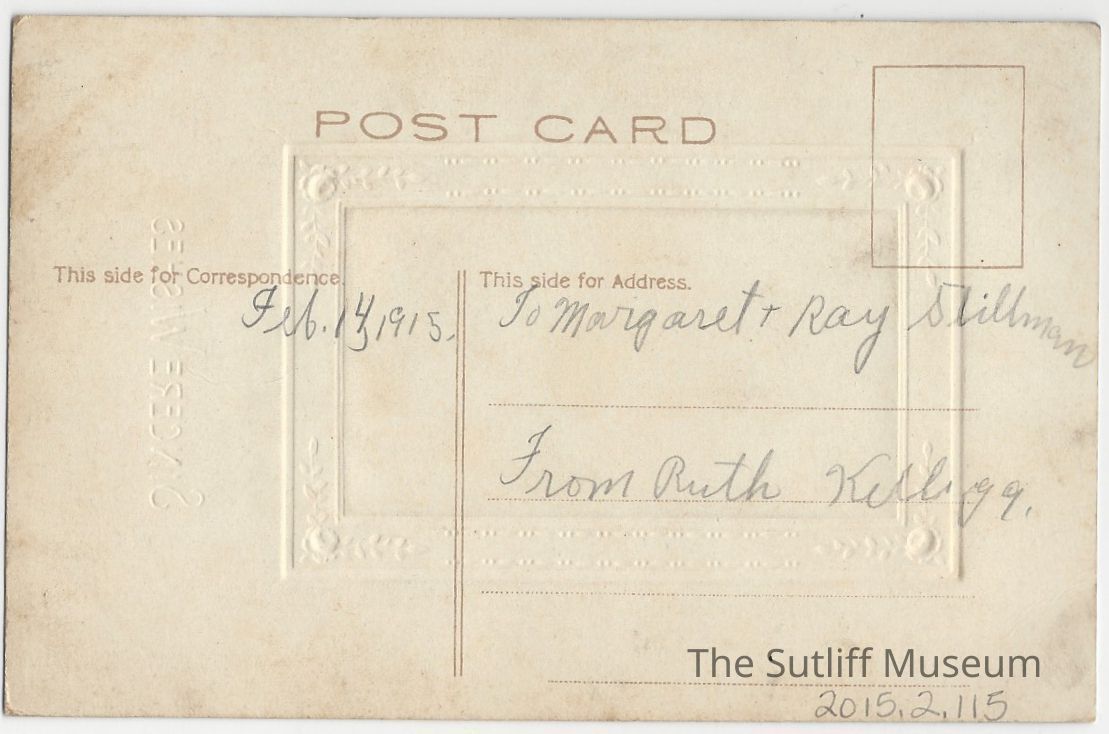 POST CARD
This side for Correspondence.
This side for Address.
Feb. 14, 1915.
To Margaret + Ray Stillman
From Ruth Kellogg.
SINCERE WISHES
The Sutliff Museum
2015.2.115